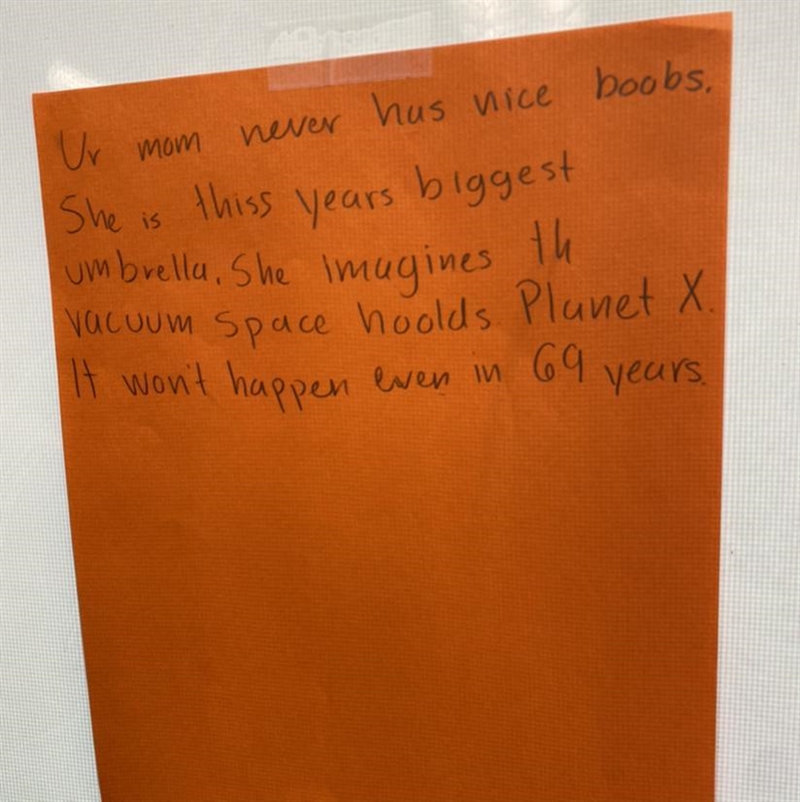 Ur mom never has nice boobs.
She is thiss years biggest
umbrella. She imagines th
vacuum space hoolds Planet X.
It won't happen even in 69 years.